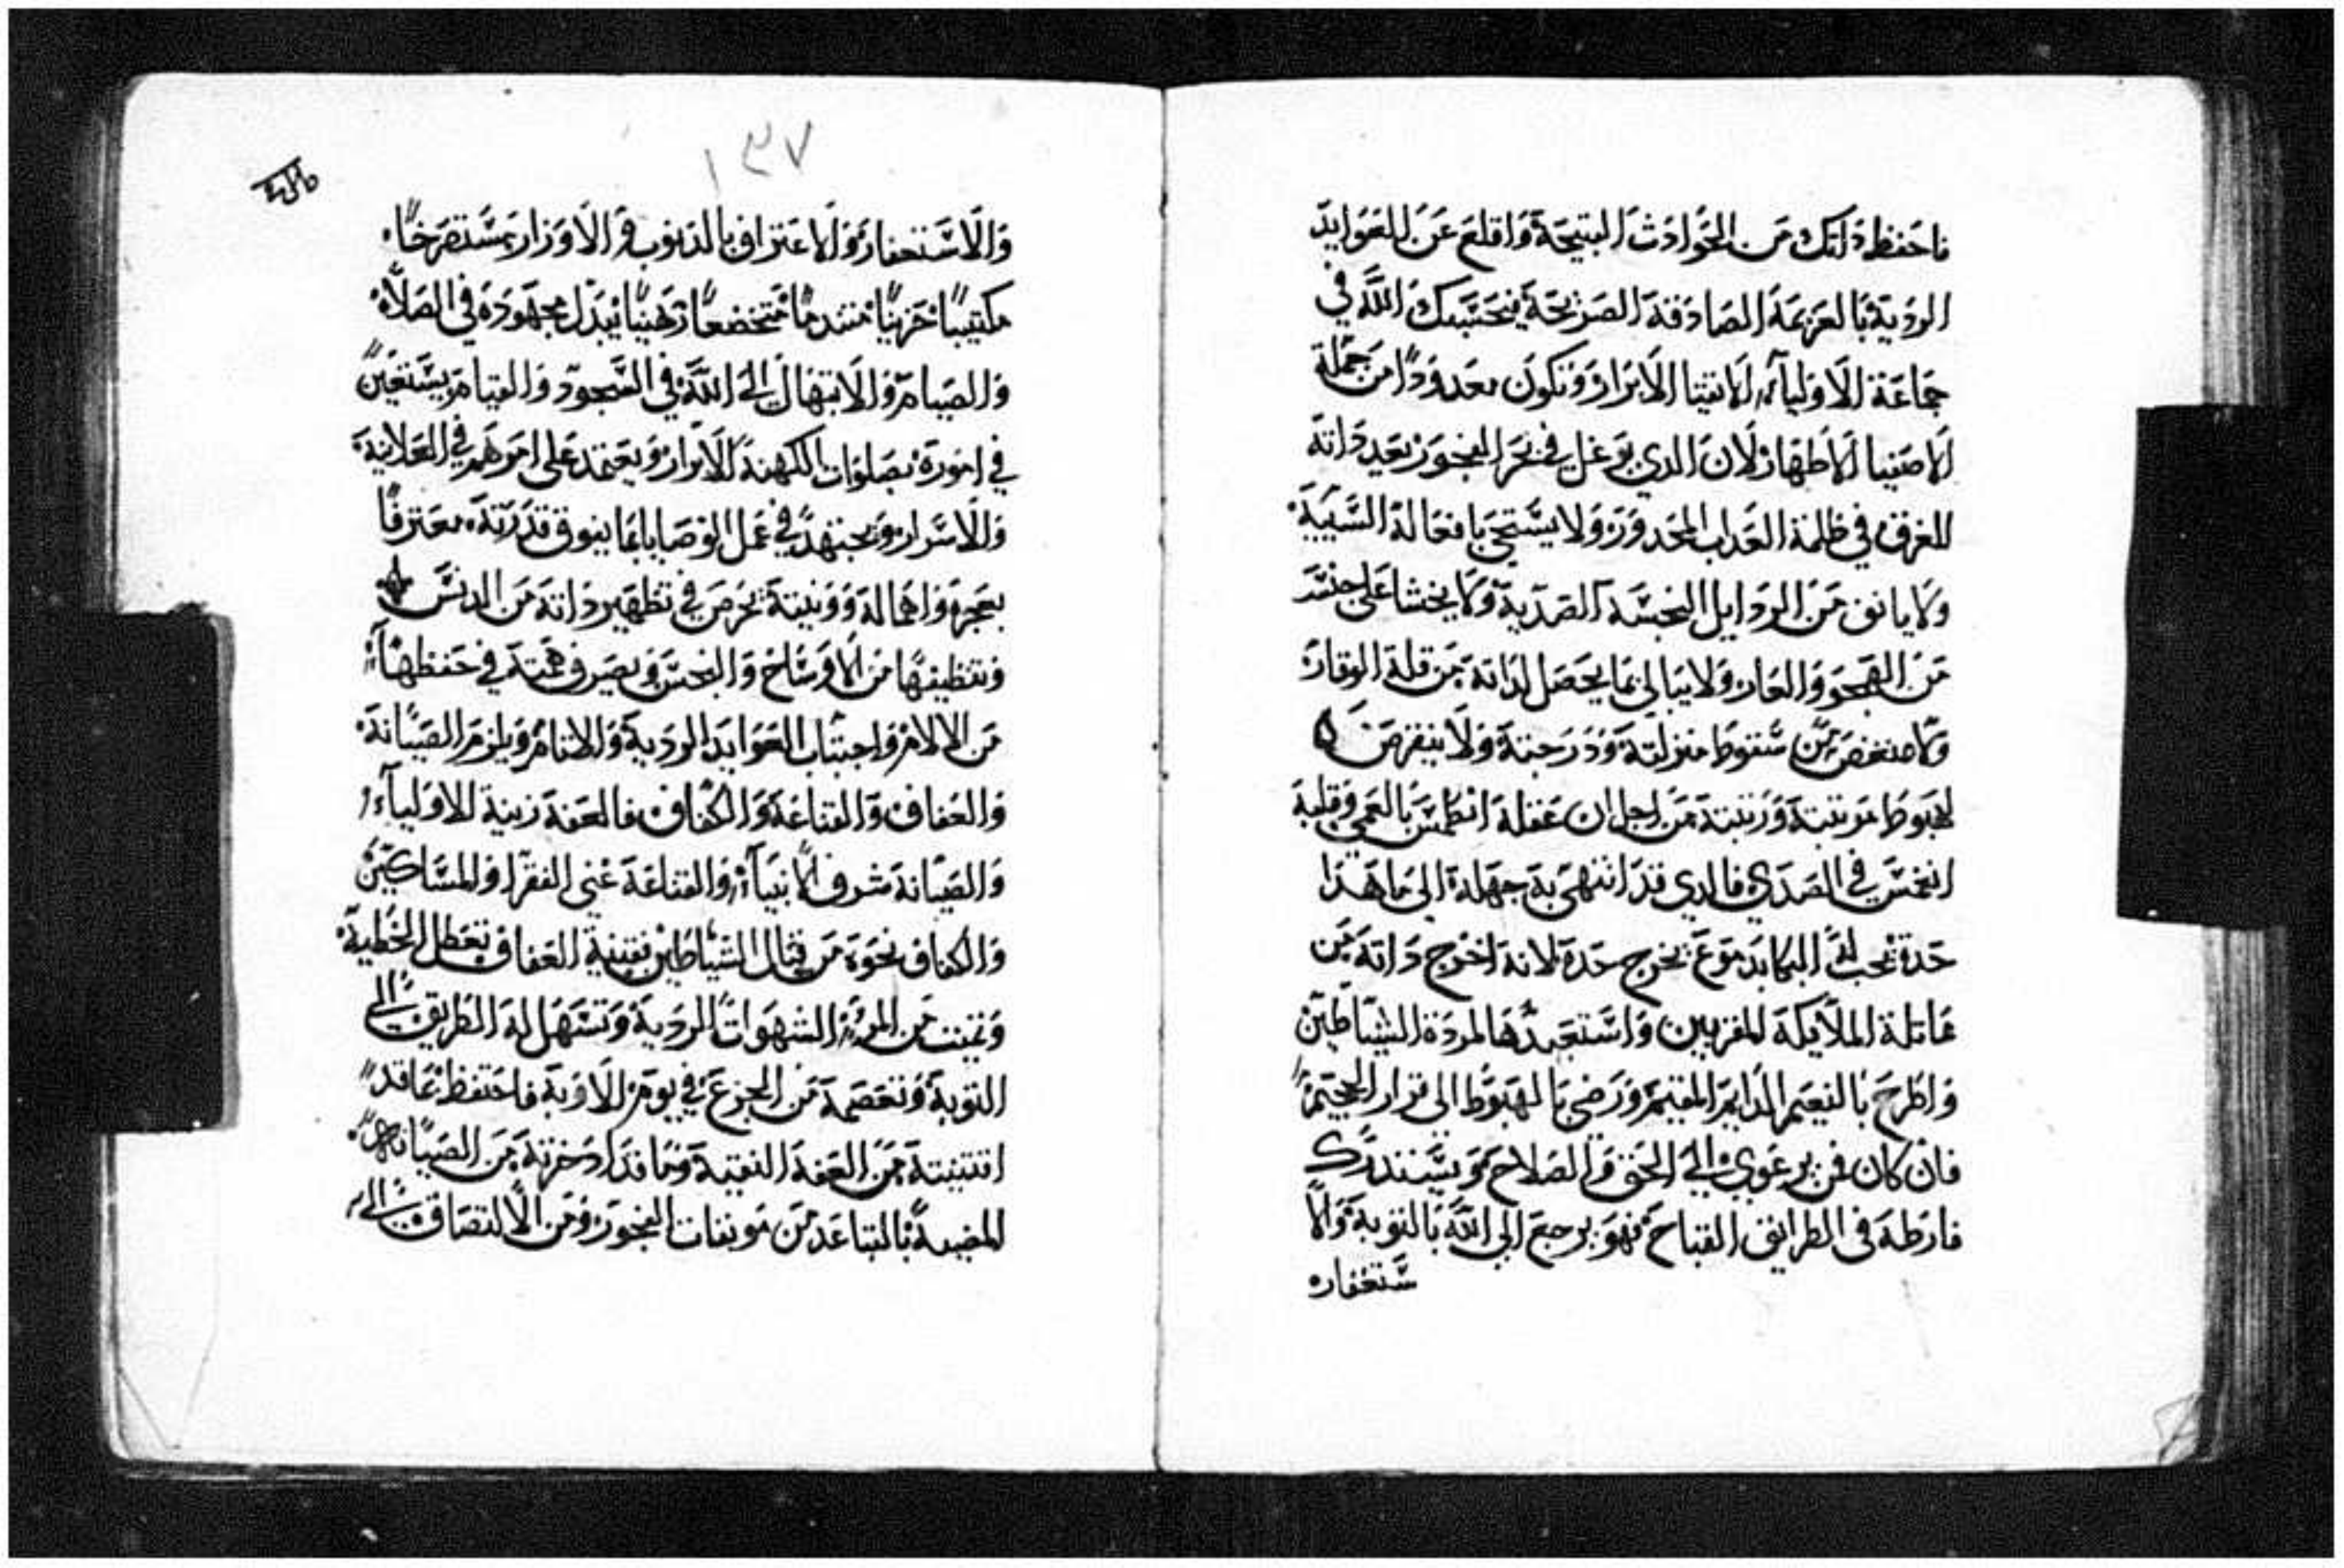 فاحفظ داتك من الحوادث القبيحة واقلع عن العوايد
الرديه بالعزيمة الصادقة الصريحة فيحتسبك الله في
جماعة الاوليآء الاتقيا الابرار وتكون معدودًا من جملة
الاصفيا الاطهار لان الدي يوغل في بحر الفجور يعيد داته
للغرق في ظلمة العداب المحدور ولا يستحي بافعاله السييه
ولا يانف من الردايل النجسة الصديه ولا يخشا على جنسه
من الهجو والعار ولا يبالي بما يحصل لداته من قلة الوقار
ولا من سقوط منزلته ودرجته ولا ينقرص
لهبوط مرتبته ورتبته من اجل ان عقله انطمس بالعمي وقلبه
انغمس في الصدي فالدي قد انتهي به جهله الى ما هدا
حده يخرج حده لانه اخرج داته من
مماتلة الملايكة المقربين واستعبدها لمردة الشياطين
واطرح بالنعيم الدايم المقيم ورضي بالهبوط الى قرار الجحيم
فان كان فمن يرعوي الى الحق والصلاح ويستدرك
فارطه في الطرايق القباح فهو يرجع الى الله بالتوبة والا
ستغفار
١٣٧
والاستغفار والاعتراف بالدنوب والاوزار مستصرخًا
مكتيبًا حزينًا متندمًا متخضعًا رهينًا يبدل مجهوده في الصلاه
والصيام والابتهال الى الله في السجود والقيام يستعين
في اموره بصلوات الكهنة الابرار ويعتمد على امرهم في العلانية
والاسرار ويجتهد في عمل الوصايا بما يفوق قدرته معترفًا
بعجزه واهماله وونيته يحرص في تطهير داته من الدنس
وتنظيفها من الاوساخ والنجس ويصرف همته في حفظها
من الالام واجتناب العوايد الرديه والاتام ويلزم الصيانة
والعفاف والقناعة والكفاف فالعفة زينة الاوليآء
والصيانة شرف الانبيآء والقناعة غني الفقرا والمساكين
والكفاف نحوه من قتال الشياطين فقنية العفاف تعطل الخطية
وتميت من المرء الشهوات الرديه وتسهل له الطريق الى
التوبة وتعصمه من الجزع في يوم الاوبة فاحتفظ بما قد
اقتنيته من العفة النقية وما قد ادخرته من الصيانه
المضيه بالتباعد من موبقات الفجور ومن الالتصاق الى